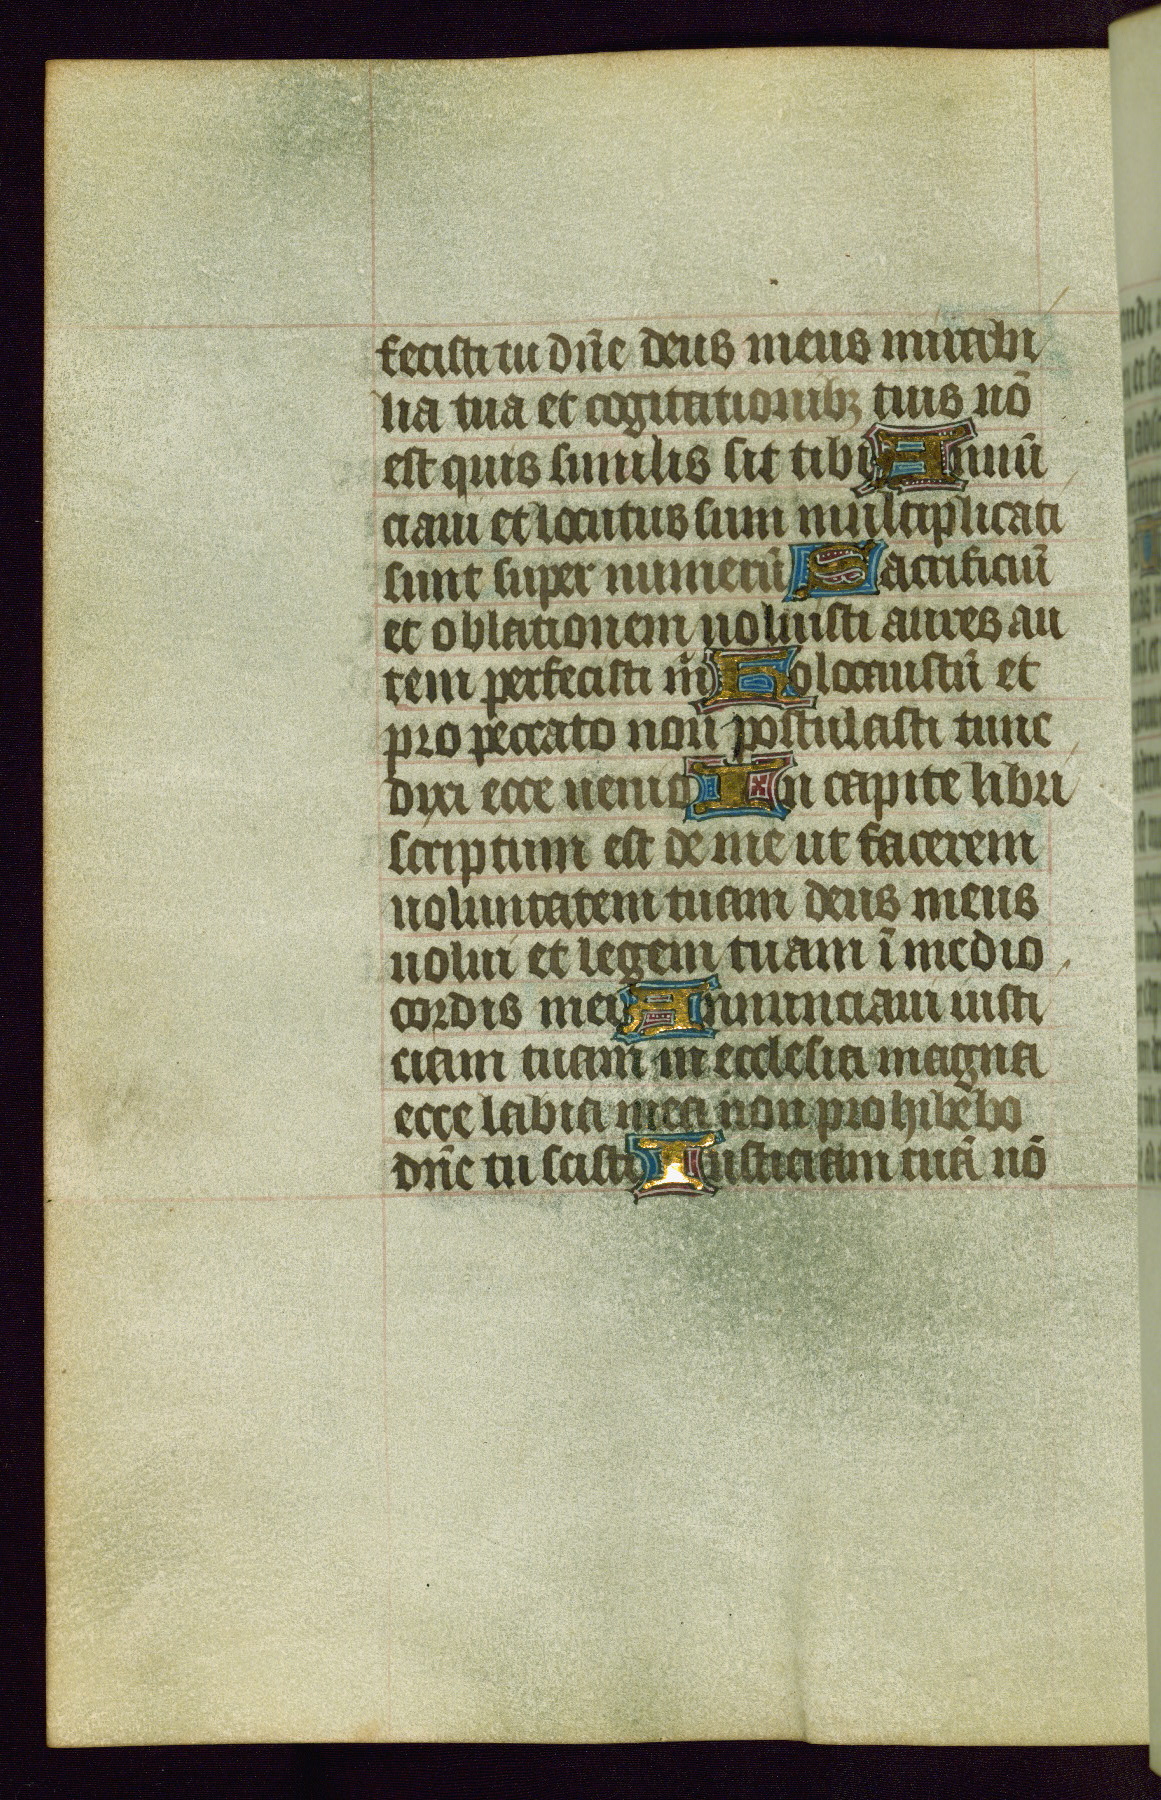 fecisti tu dn̄e deus meus mirabi
lia tua et cogitationibꝫ tuis nō
est quis similis sit tibi Annū
ciaui et locutus sum multiplicati
sunt super numerū Sacrificiū
et oblationem noluisti aures au
tem perfecisti m̄ Holocaustū et
pro peccato non postulasti tunc
dixi ecce uenio In capite libri
scriptum est de me ut facerem
uoluntatem tuam deus meus
uolui et legem tuam ī medio
cordis mei Annunciaui iusti
ciam tuam in ecclesia magna
ecce labia mea non prohibebo
dn̄e tu scisti Iusticiam tuā nō